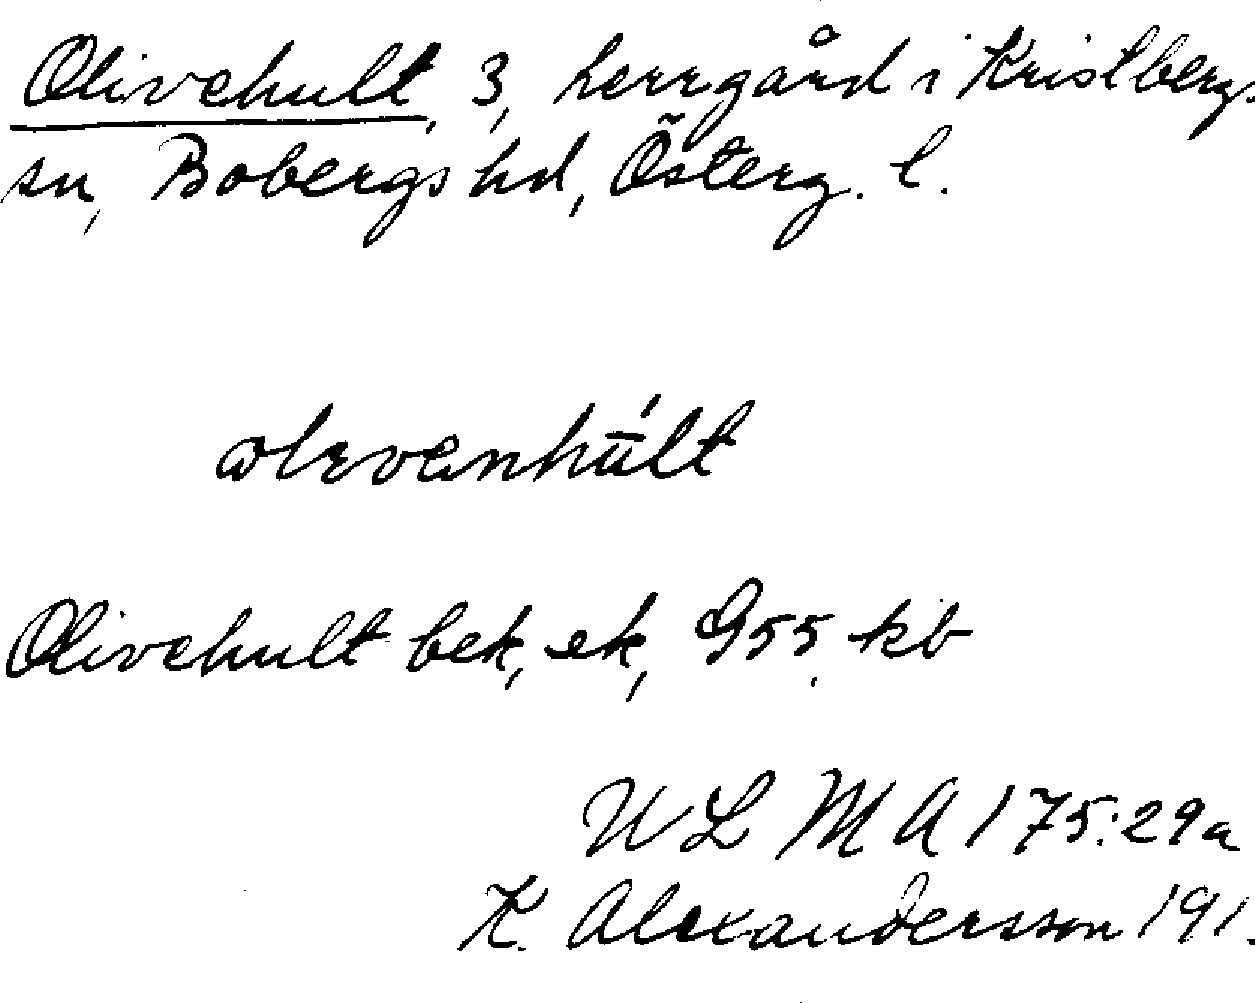 Olivehult, 3, herrgård i Kristbergs
sn, Bobergs hd, Österg. l.
Olivehult bek, ek, G55 kb
ULMA 175:29a
K. Alexandersson 191